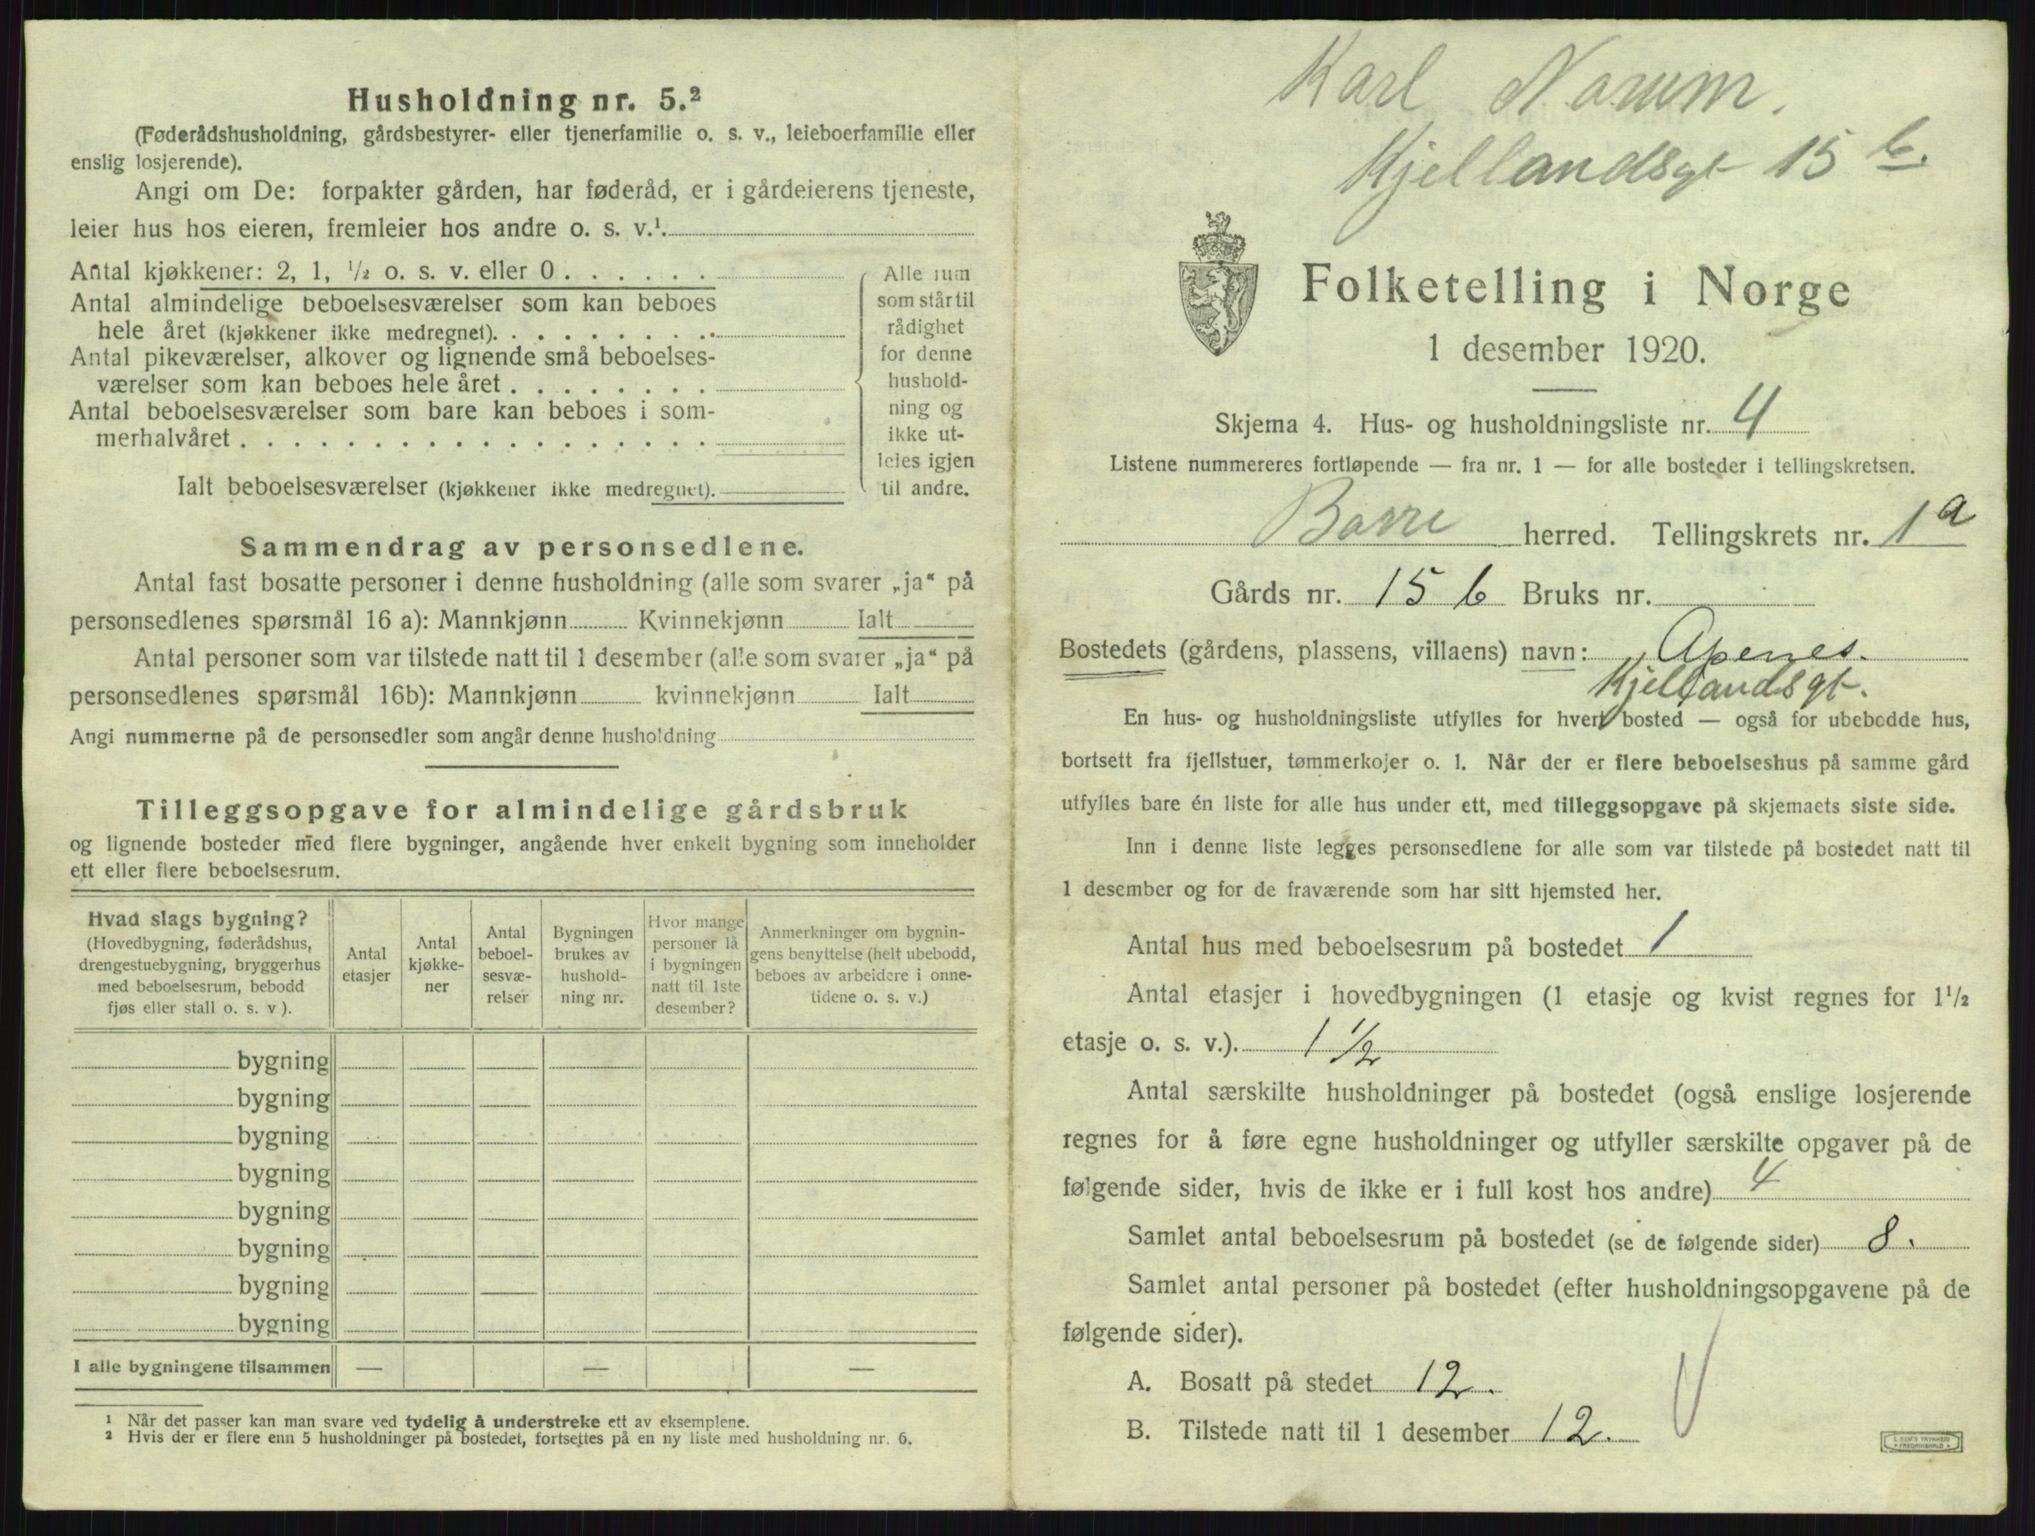 Husholdning nr. 5.²
(Føderådshusholdning, gårdsbestyrer- eller tjenerfamilie o. s. v., leieboerfamilie eller
enslig losjerende).
Angi om De: forpakter gården, har føderåd, er i gårdeierens tjeneste,
leier hus hos eieren, fremleier hos andre o. s. v.¹
Antal kjøkkener: 2, 1, ½ o. s. v. eller 0
Antal almindelige beboelsesværelser som kan beboes
hele året (kjøkkener ikke medregnet).
Antal pikeværelser, alkover og lignende små beboelses-
værelser som kan beboes hele året
Antal beboelsesværelser som bare kan beboes i som-
merhalvåret
Ialt beboelsesværelser (kjøkkener ikke medregnet).
Alle rum
som står til
rådighet
for denne
hushold-
ning og
ikke ut-
leies igjen
til andre.
Sammendrag av personsedlene.
Antal fast bosatte personer i denne husholdning (alle som svarer „ja“ på
personsedlenes spørsmål 16 a): Mannkjønn Kvinnekjønn Ialt
Antal personer som var tilstede natt til 1 desember (alle som svarer „ja“ på
personsedlenes spørsmål 16b): Mannkjønn kvinnekjønn Ialt
Angi nummerne på de personsedler som angår denne husholdning
Tilleggsopgave for almindelige gårdsbruk
og lignende bosteder med flere bygninger, angående hver enkelt bygning som inneholder
ett eller flere beboelsesrum.
Hvad slags bygning?
(Hovedbygning, føderådshus,
drengestuebygning, bryggerhus
med beboelsesrum, bebodd
fjøs eller stall o. s. v ).
Antal
etasjer
Antal
kjøkke-
ner
Antal
beboel-
sesvæ-
relser
Bygningen
brukes av
hushold-
ning nr.
Hvor mange
personer lå
i bygningen
natt til 1ste
desember?
Anmerkninger om bygnin-
gens benyttelse (helt ubebodd,
beboes av arbeidere i onne-
tidene o. s. v.)
bygning
bygning
bygning
bygning
bygning
bygning
bygning
bygning
I alle bygningene tilsammen — — —
¹ Når det passer kan man svare ved tydelig å understreke ett av eksemplene.
² Hvis der er flere enn 5 husholdninger på bostedet, fortsettes på en ny liste med husholdning nr. 6.
Karl Norum.
Kjellandsgt 15 b.
Folketelling i Norge
1 desember 1920.
Skjema 4. Hus- og husholdningsliste nr. 4
Listene nummereres fortløpende — fra nr. 1 — for alle bosteder i tellingskretsen.
Borre herred. Tellingskrets nr. 1a
Gårds nr. 15 b Bruks nr.
Bostedets (gårdens, plassens, villaens) navn: Apenes.
Kjellandsgt.
En hus- og husholdningsliste utfylles for hvert bosted — også for ubebodde hus,
bortsett fra fjellstuer, tømmerkojer o. l. Når der er flere beboelseshus på samme gård
utfylles bare én liste for alle hus under ett, med tilleggsopgave på skjemaets siste side.
Inn i denne liste legges personsedlene for alle som var tilstede på bostedet natt til
1 desember og for de fraværende som har sitt hjemsted her.
Antal hus med beboelsesrum på bostedet 1
Antal etasjer i hovedbygningen (1 etasje og kvist regnes for 1½
etasje o. s. v.). 1½
Antal særskilte husholdninger på bostedet (også enslige losjerende
regnes for å føre egne husholdninger og utfyller særskilte opgaver på de
følgende sider, hvis de ikke er i full kost hos andre) 4
Samlet antal beboelsesrum på bostedet (se de følgende sider) 8.
Samlet antal personer på bostedet (efter husholdningsopgavene på de
følgende sider).
A. Bosatt på stedet 12.
B. Tilstede natt til 1 desember 12.